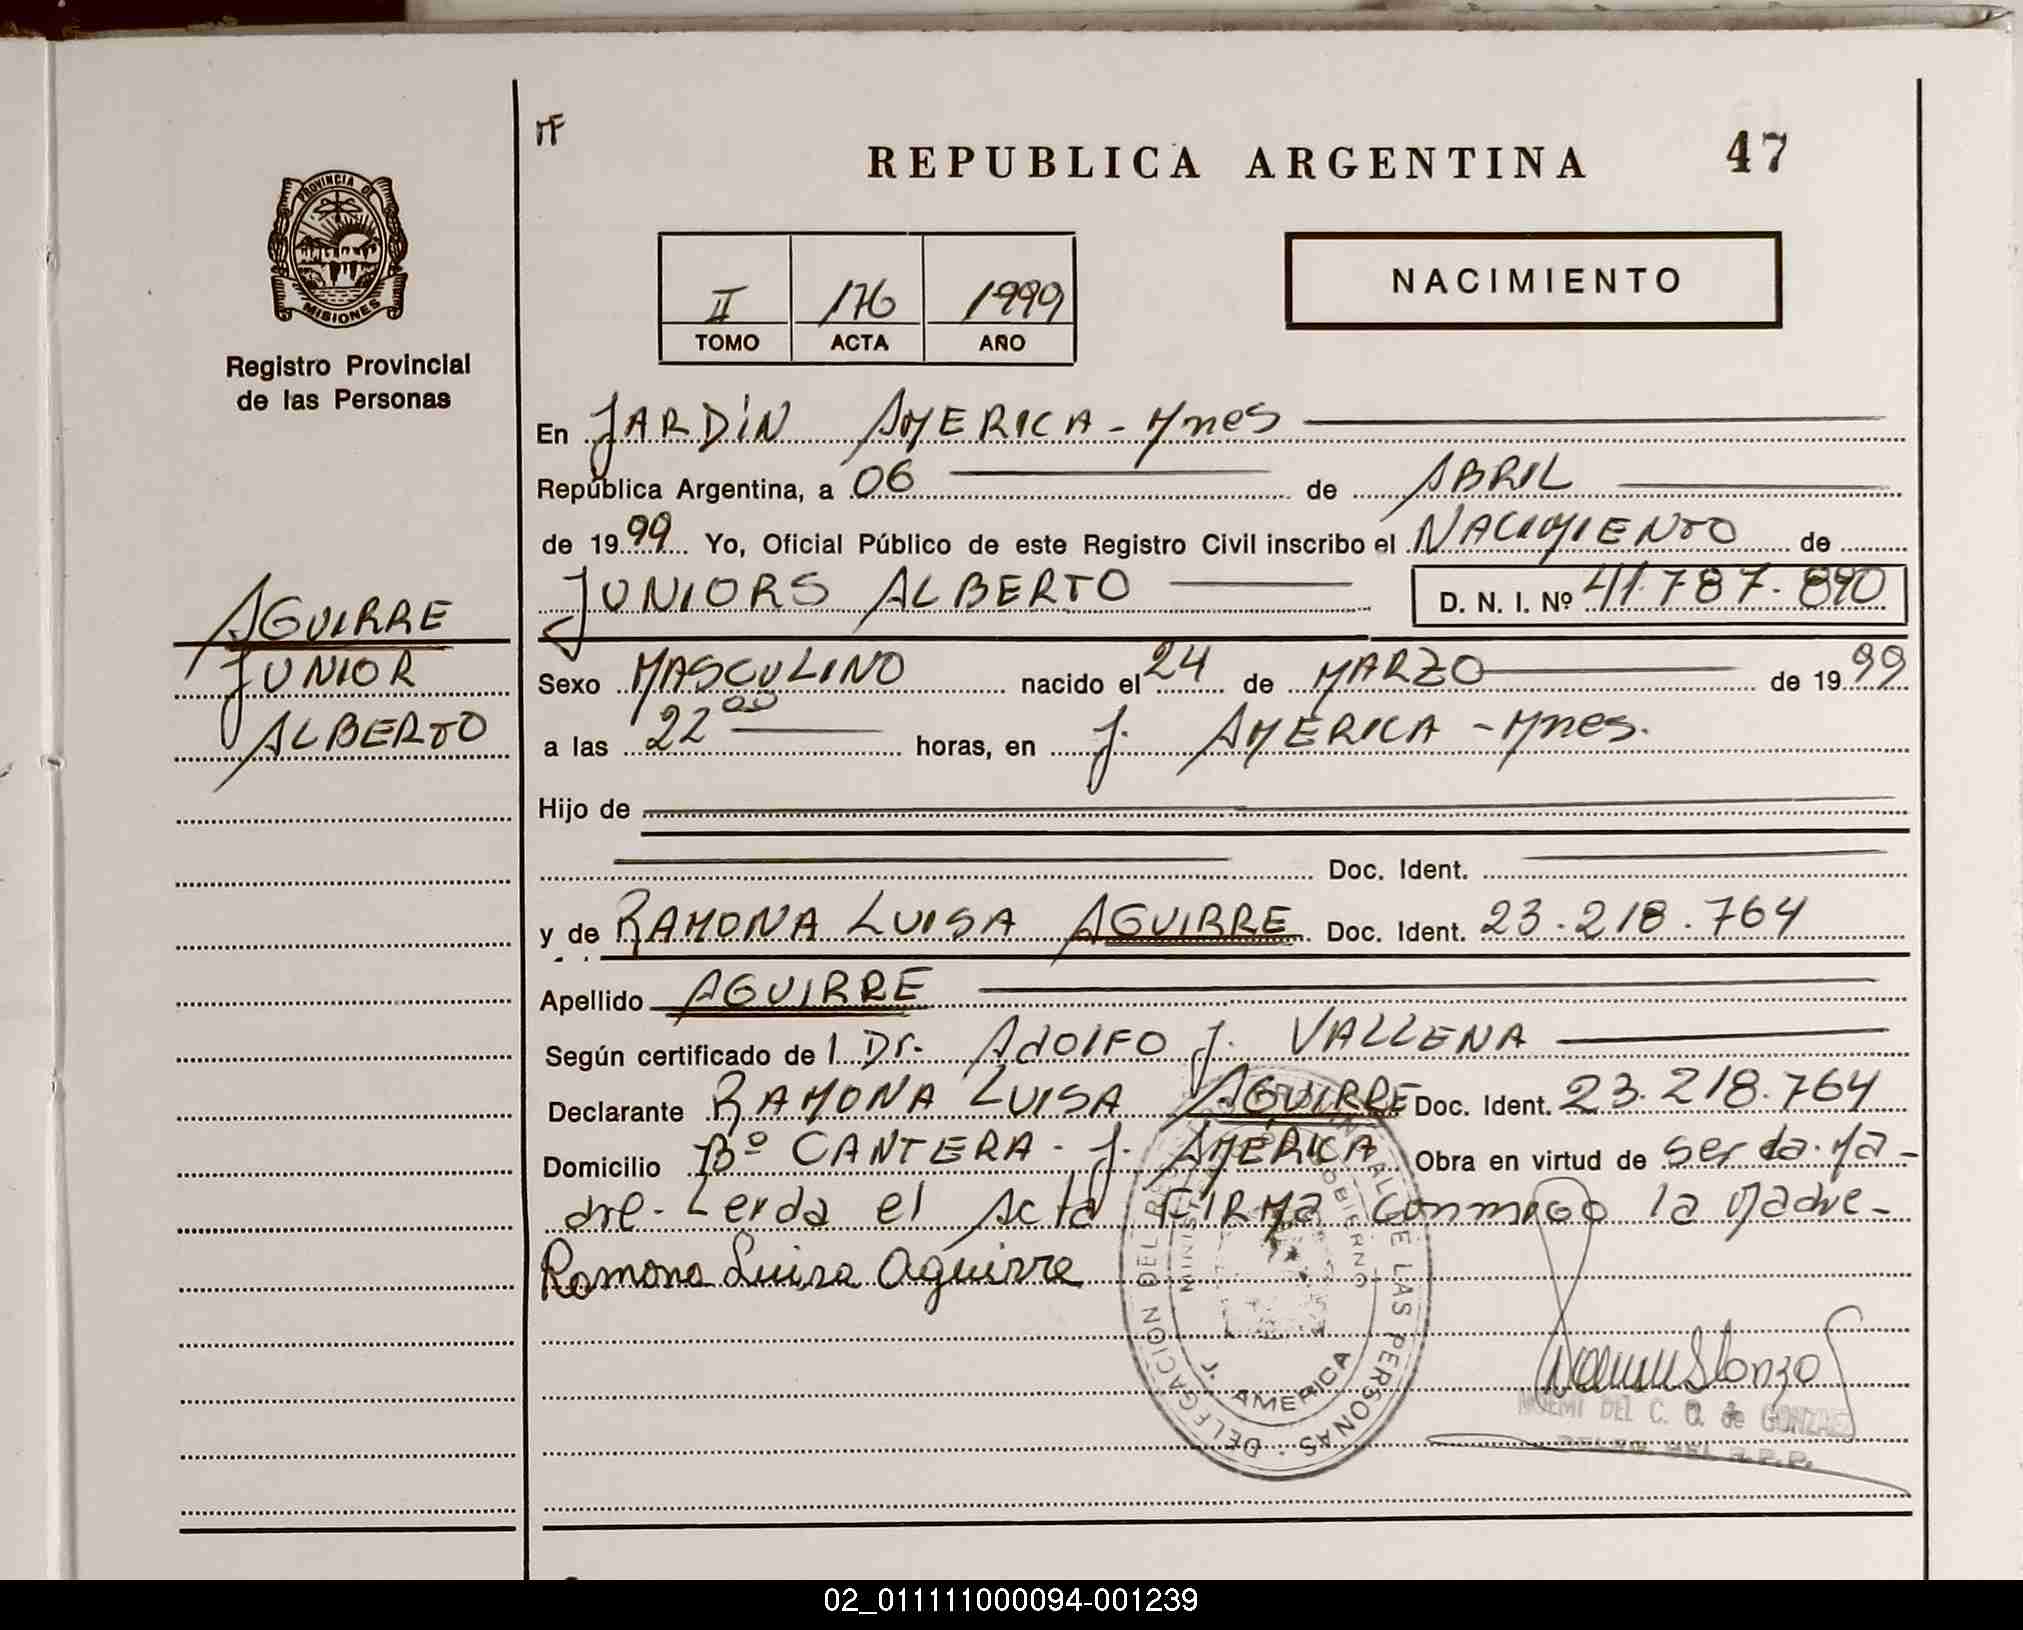 MF
REPUBLICA ARGENTINA
47
PROVINCIA DE
MISIONES
Registro Provincial
de las Personas
II 176 1999
TOMO ACTA AÑO
NACIMIENTO
En JARDIN AMERICA - Mnes
República Argentina, a 06 de ABRIL
de 1999 Yo, Oficial Público de este Registro Civil inscribo el NACIMIENTO de
JUNIORS ALBERTO D. N. I. Nº 41.787.890
AGUIRRE
JUNIOR
ALBERTO
Sexo MASCULINO nacido el 24 de MARZO de 1999
a las 22 00 horas, en J. AMERICA - Mnes.
Hijo de
Doc. Ident.
y de RAMONA LUISA AGUIRRE Doc. Ident. 23.218.764
Apellido AGUIRRE
Según certificado de l Dr. ADOLFO J. VALLENA
Declarante RAMONA LUISA AGUIRRE Doc. Ident. 23.218.764
Domicilio Bº CANTERA - J. AMERICA Obra en virtud de ser la Ma-
dre - Leida el Acta FIRMA Conmigo la Madre -
Ramona Luisa Aguirre
DELEGACION DEL LAS PERSONAS
J. AMERICA
NOEMI DEL C. O. de GONZALEZ
02_011111000094-001239